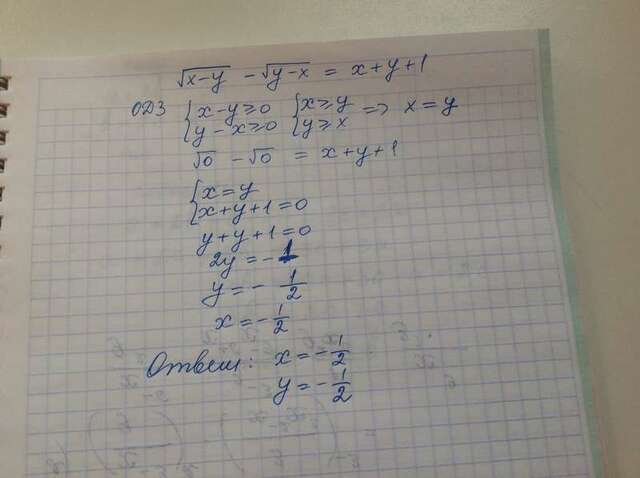 √x-y - √y-x = x+y+1
ОДЗ { x-y≥0 { x≥y => x=y
{ y-x≥0 { y≥x
√0 - √0 = x+y+1
{ x=y
{ x+y+1=0
y+y+1=0
2y=-1
y=-1/2
x=-1/2
Ответ: x=-1/2
y=-1/2